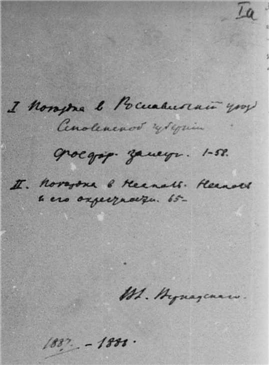 Iа
I Поездка в Рославльский уезд
Смоленской губернии
Фосфор. замет. 1-58.
II. Поездка в Неаполь. Неаполь
и его окрестности. 65-
В. Вернадского.
1887. - 1888.